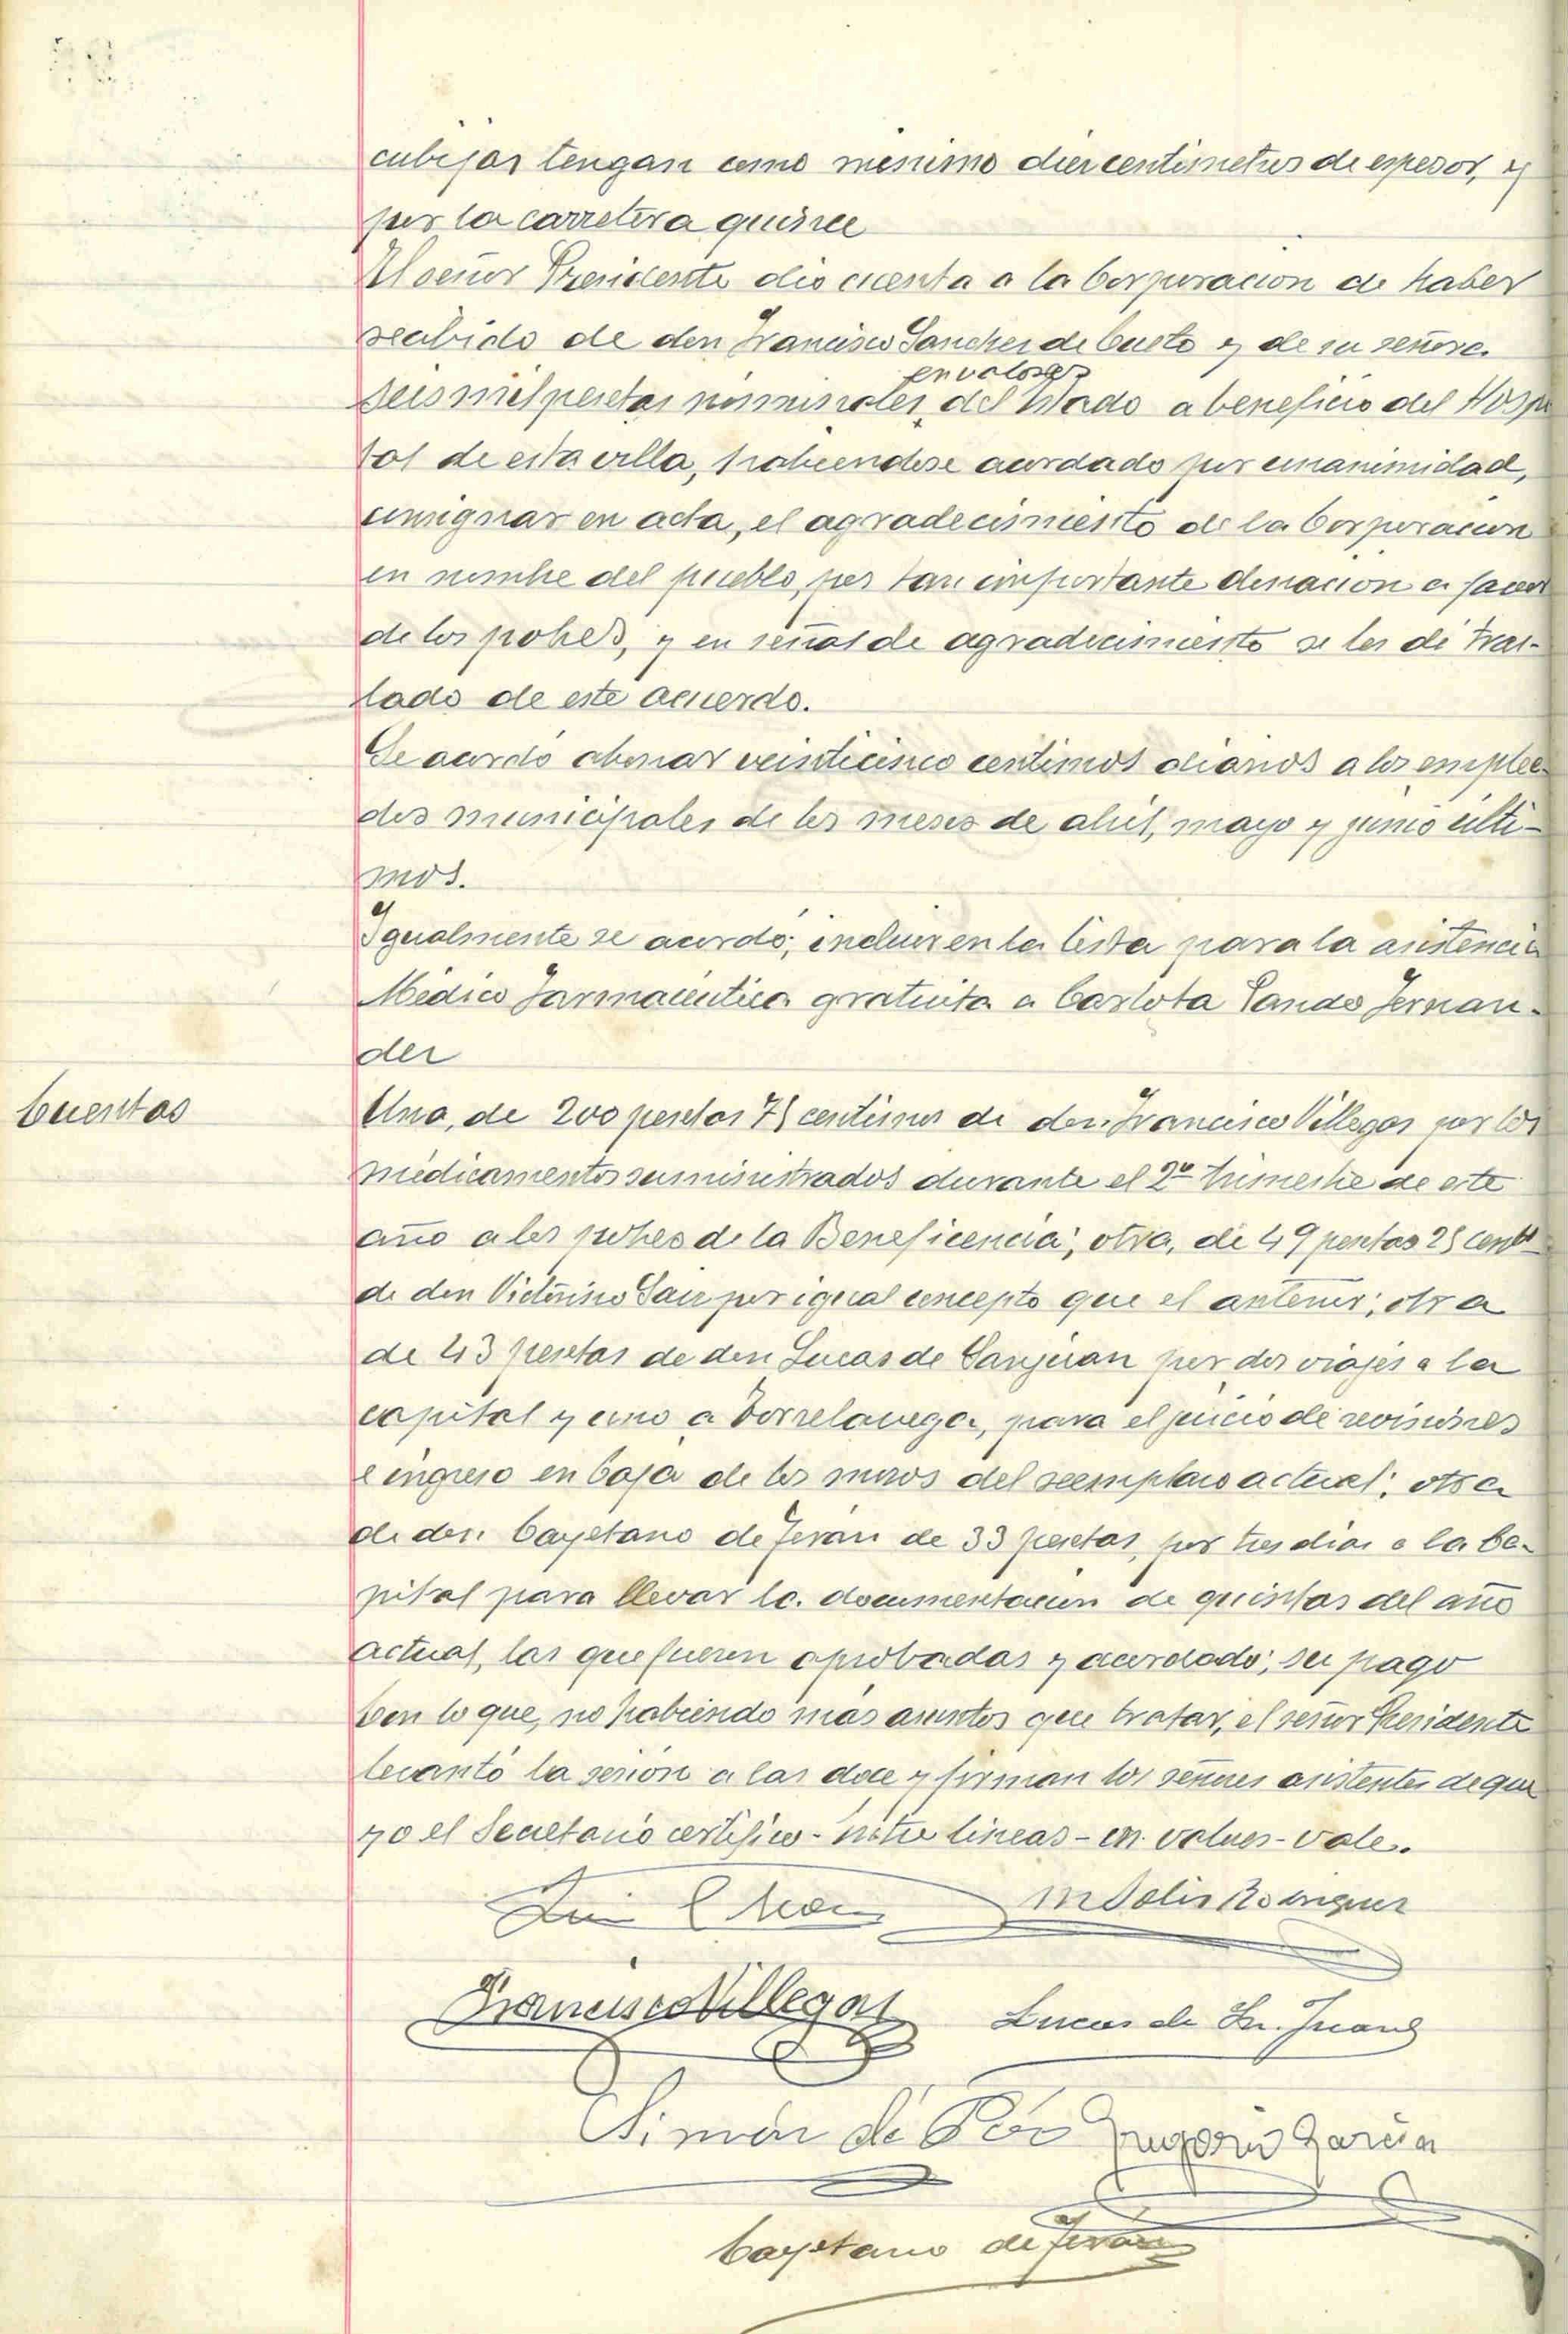 cubijas tengan como minimo diez centimetros de espesor, y
por la carretera quince
El señor Presidente dio cuenta a la Corporacion de haber
recibido de don Francisco Sanchez de Cueto y de su señora
en valores
seis mil pesetas nominales, del Estado a beneficio del Hospi
tal de esta villa, habiendose acordado por unanimidad,
consignar en acta, el agradecimiento de la Corporacion
en nombre del pueblo, por tan importante donacion a favor
de los pobres, y en señal de agradecimiento se les dé tras-
lado de este acuerdo.
Se acordó abonar veinticinco centimos diarios a los emplea-
dos municipales de los meses de abril, mayo y junio ulti-
mos.
Igualmente se acordó, incluir en la lista para la asistencia
Médico Farmacéutica gratuita a Carlota Pando Fernan-
dez
Cuentas
Una, de 200 pesetas 75 centimos de don Francisco Villegas por los
medicamentos suministrados durante el 2º trimestre de este
año a los pobres de la Beneficencia; otra, de 49 pesetas 25 cents
de don Victorino Saiz por igual concepto que el anterior; otra
de 43 pesetas de don Lucas de Sanjuan por dos viajes a la
capital y uno a Torrelavega, para el juicio de revisiones
e ingreso en Caja de los mozos del reemplazo actual; otra
de don Cayetano de Teran de 33 pesetas, por tres dias a la Ca-
pital para llevar la documentacion de quintas del año
actual, las que fueron aprobadas y acordado, su pago
Con lo que, no habiendo más asuntos que tratar, el señor Presidente
levantó la sesión a las doce y firman los señores asistentes de que
yo el Secretario certifico - entre lineas - en valores - vale.
M Solis Rodriguez
Francisco Villegas
Lucas de Sn. Juan
Simón de
Gregorio Garcia
Cayetano de Teran